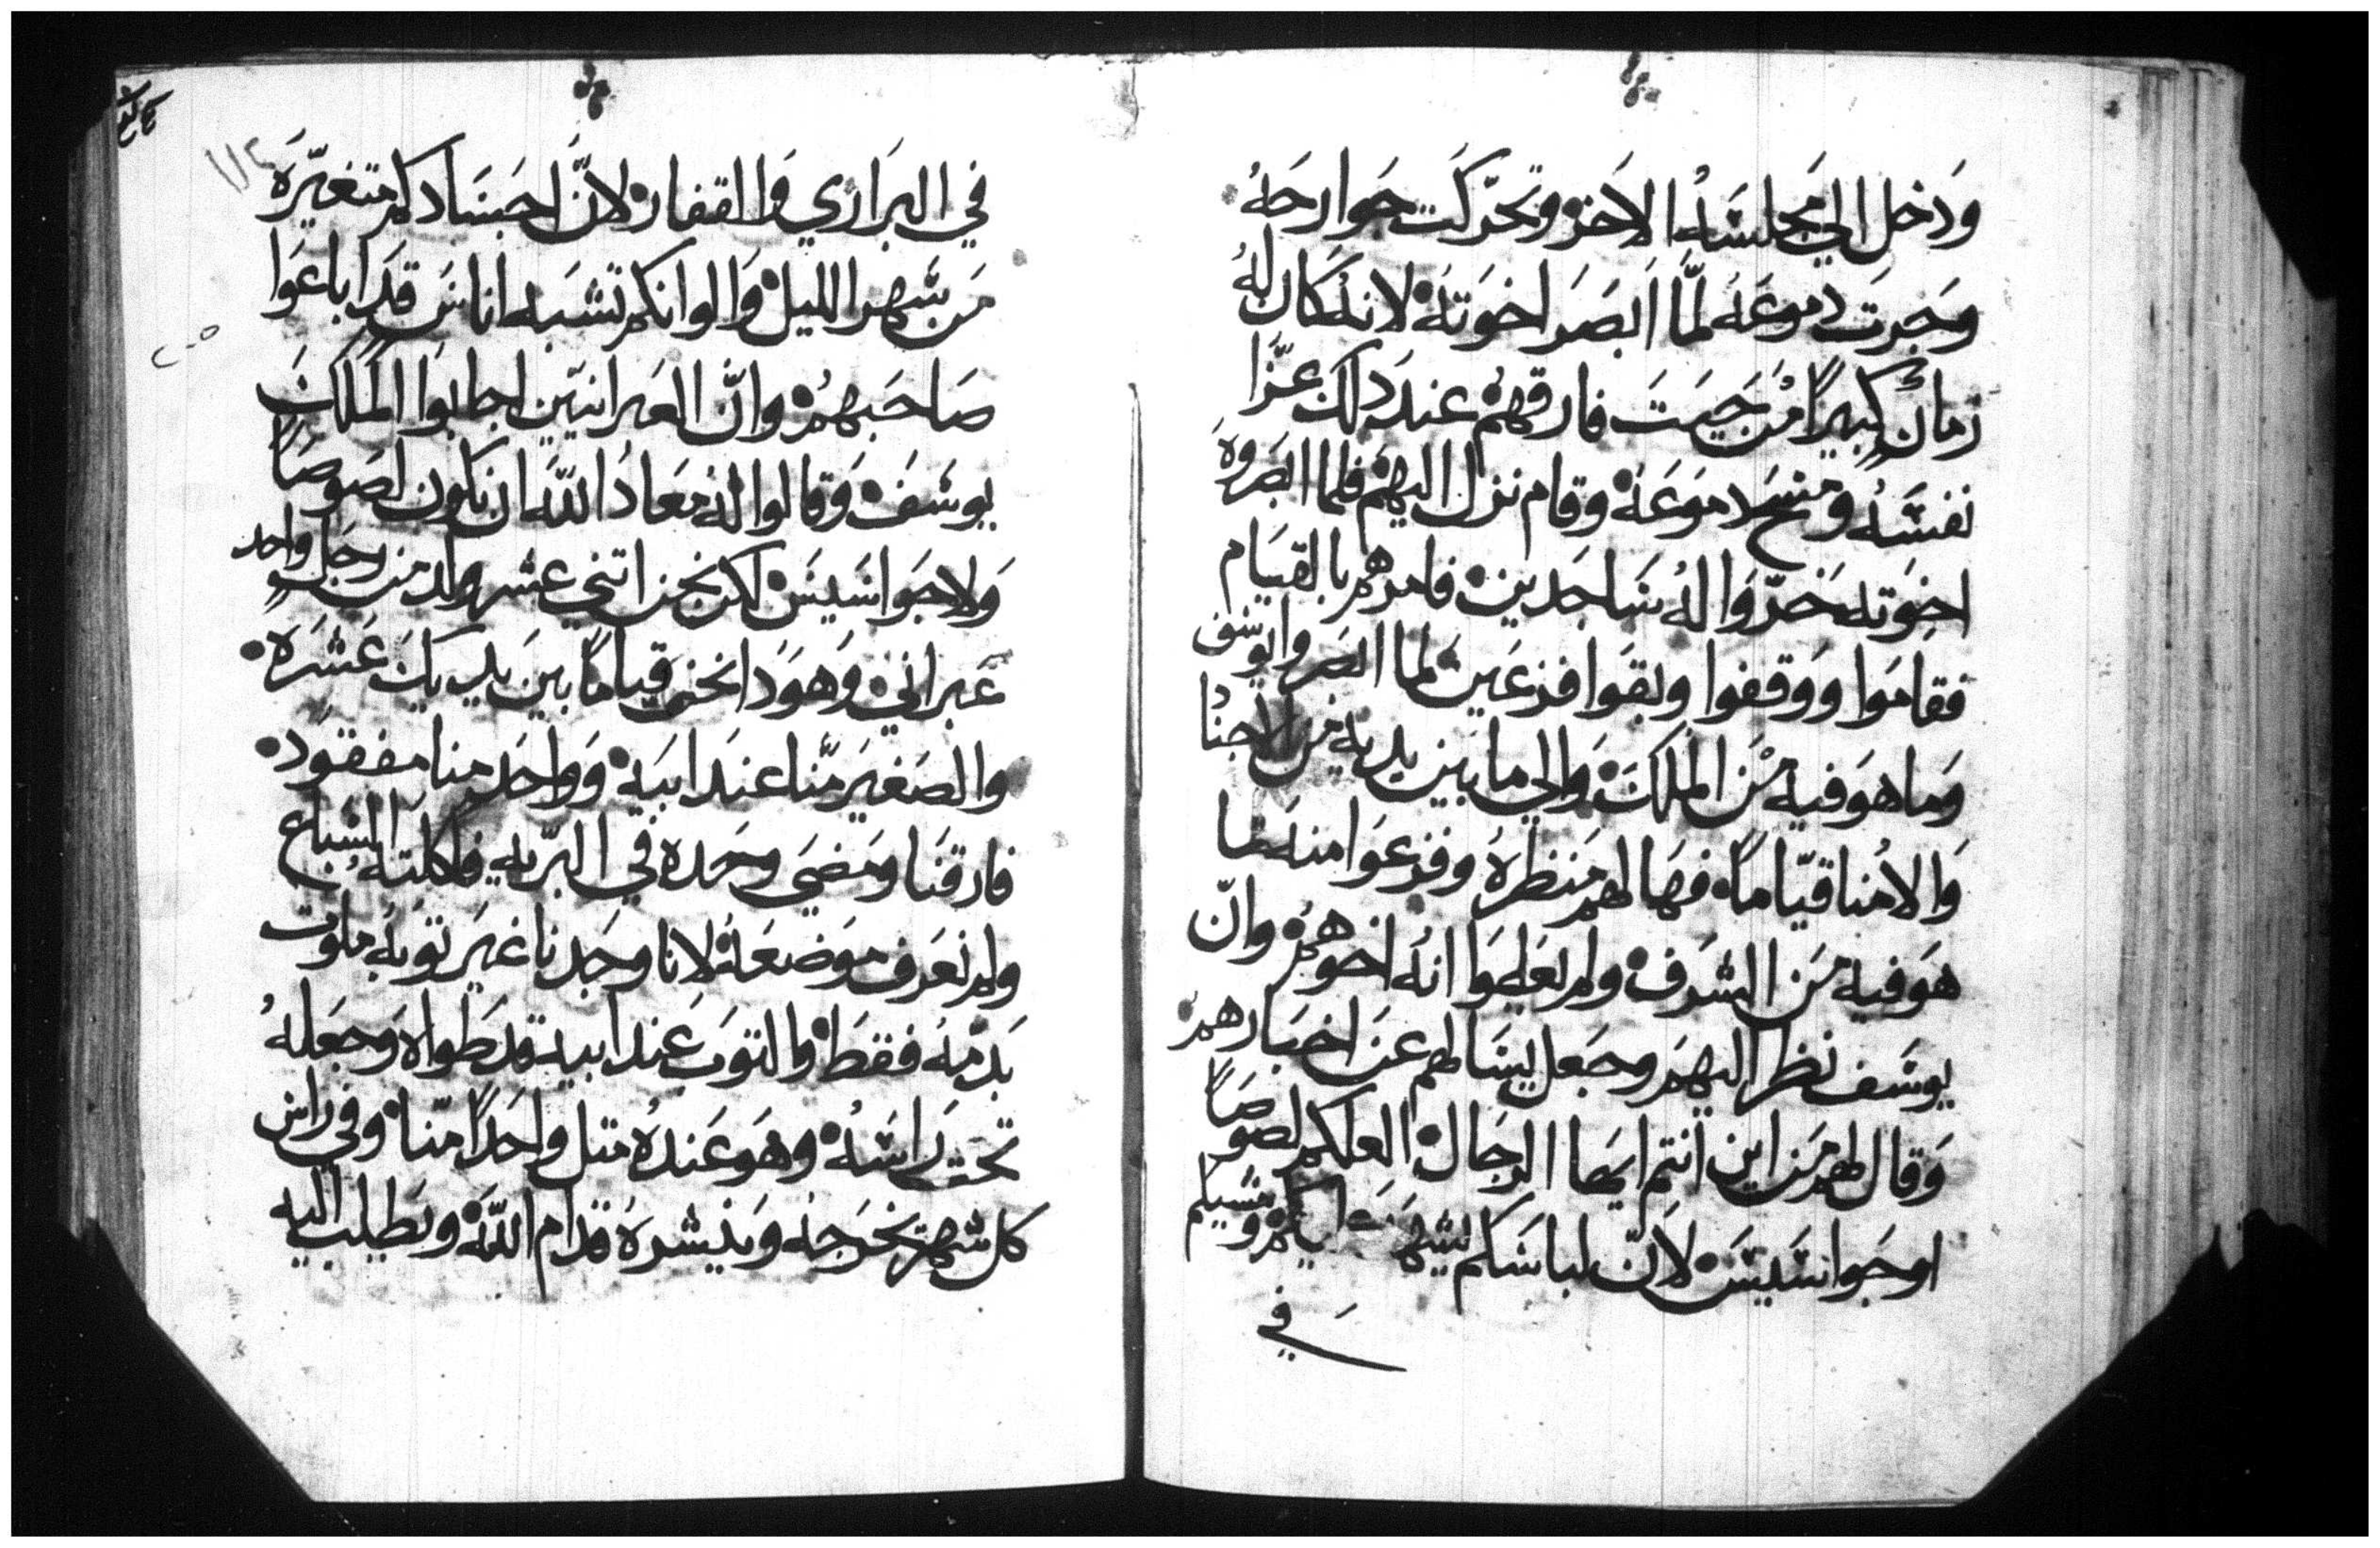 وَدخل الي مجلسَهُ الاخرْ وتحرّكَت جوارحَهُ
وَجرت دموعَهُ لمّا اَبصَر اخوَتهُ لانهُ كَان لهُ
زمانٍ كبيرًا مْن حَيت فارقهمْ عند دلك عزّا
نفسَهُ ومسَح دموَعَهُ وقام نزل اليهمْ فلما ابصروهُ
اخوَته خرّوَا لهُ سَاجدين فامرهم بالقيَام
فقاموا ووقفوا وبقوا فزعَين لما ابصروا يوسَف
وَما هوَ فيه مْن الملكَ وَالي ما بَين يديه من الاجنا
وَالاُمنا قيّاما فهَالهم منظرهُ وفزعَوا منه لما
هوَ فيه مَن الشرَف ولم يَعلموا انهُ اخوهمْ وانّ
يوسَف نظر اليهمَ وجعل يسَالهم عنَ اخبارهمْ
وَقال لهم مَن اين انتم ايهَا الرجال العلكم لصوصًا
اوجَواسَيسَ لاَنّ لباسَكم يشهَد ومشيكم
في
في البَراري وَالقفار لانّ اجسَادكم متغيّرَه
مَن سَهر الليل وَالوانكم تشبَه اناسٍ قدَ اباعَوا
صَاحَبهمْ وانّ العَبرانيّين اجابوَا الملكَ
يوسَفْ وَقالوا لهُ مَعادُ اللّهَ ان نكون لصَوصًا
وَلا جوَاسَيسَ لكن نحن اتني عشر ولد من رجلٍ واحد
عَبراني وَهوَدا نحن قياماً بين يديكَ عَشرَه
والصَغير منّا عندَ ابيَه وَواحَد منا مفقوَد
فارقنَا ومَضي وحَده في البرّيه فاكلتهُ السَباع
ولم نعَرف موَضعَهُ لانا وجَدنا غير توبهُ ملوت
بَدمّهُ فقطَ والتوَب عَند ابيه قد طَواه وَجعَلهُ
تحت راسَهُ وهوَ عَندهُ متل واحدًا منّا وفي راس
كل شهر يخرَجهُ وَينشرهُ قدام اللّهَ ويَطلب اليه